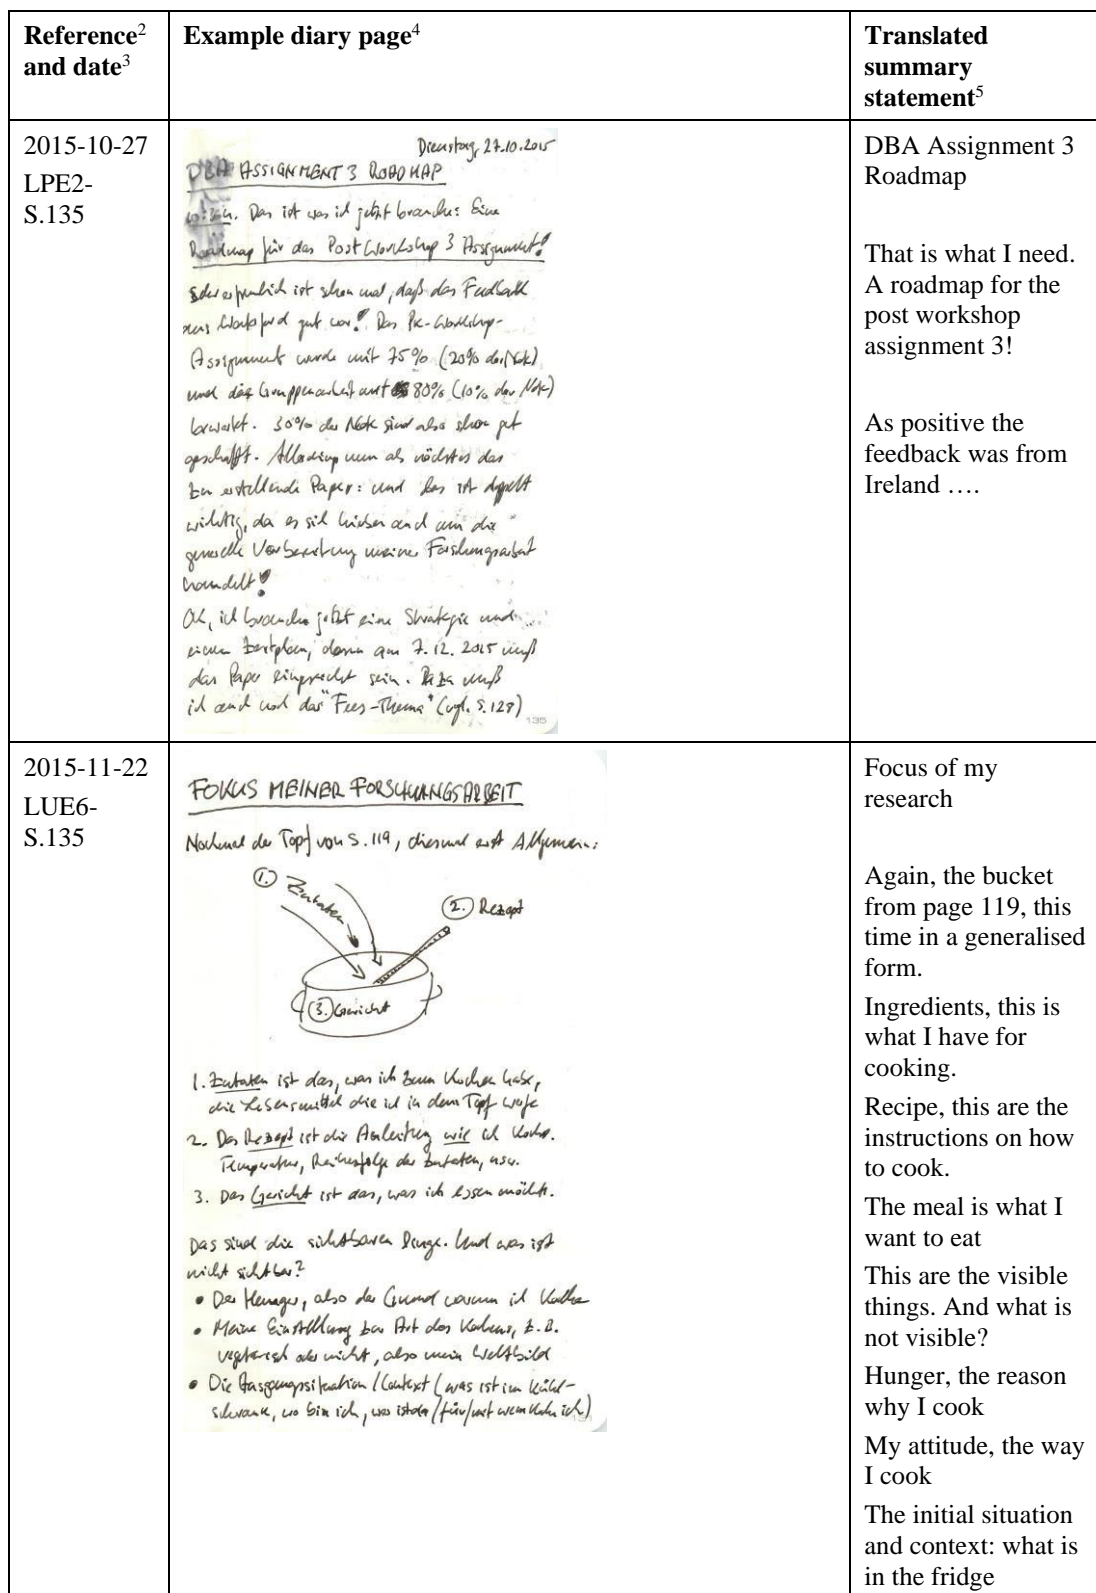 Reference² and date³
Example diary page⁴
Translated summary statement⁵
2015-10-27
LPE2-
S.135
Dienstag, 27.10.2015
DBA ASSIGNMENT 3 ROADMAP
Das ist was ich jetzt brauche: Eine
Roadmap für das Post Workshop 3 Assignment!
ist schon mal, daß das Feedback
aus Waterford gut war! Das Pre-Workshop-
Assignment wurde mit 75% (20% der Note)
und die Gruppenarbeit mit 80% (10% der Note)
bewertet. 30% der Note sind also schon gut
geschafft. Allerdings nun als nächstes das
zu erstellende Paper: und das ist doppelt
wichtig, da es sich hierbei auch um die
generelle Vorbereitung meiner Forschungsarbeit
handelt!
ich brauche jetzt eine Strategie und
einen Zeitplan, denn am 7.12.2015 muß
das Paper eingereicht sein. Dazu muß
ich auch noch das "Fees-Thema" (vgl. S.128)
135
DBA Assignment 3
Roadmap
That is what I need.
A roadmap for the
post workshop
assignment 3!
As positive the
feedback was from
Ireland ….
2015-11-22
LUE6-
S.135
FOKUS MEINER FORSCHUNGSARBEIT
Nochmal der Topf von S. 119, diesmal erst Allgemein:
1. Zutaten
2. Rezept
3. Gericht
1. Zutaten ist das, was ich zum Kochen habe,
die Lebensmittel die ich in dem Topf werfe
2. Das Rezept ist die Anleitung wie ich koche.
Temperatur, Reihenfolge der Zutaten, usw.
3. Das Gericht ist das, was ich essen möchte.
Das sind die sichtbaren Dinge. Und was ist
nicht sichtbar?
• Der Hunger, also der Grund warum ich koche
• Meine Einstellung zur Art des Kochens, z.B.
vegetarisch oder nicht, also mein Weltbild
• Die Ausgangssituation / Context (was ist im Kühl-
schrank, wo bin ich, was ist da / für/mit wem koche ich)
Focus of my
research
Again, the bucket
from page 119, this
time in a generalised
form.
Ingredients, this is
what I have for
cooking.
Recipe, this are the
instructions on how
to cook.
The meal is what I
want to eat
This are the visible
things. And what is
not visible?
Hunger, the reason
why I cook
My attitude, the way
I cook
The initial situation
and context: what is
in the fridge